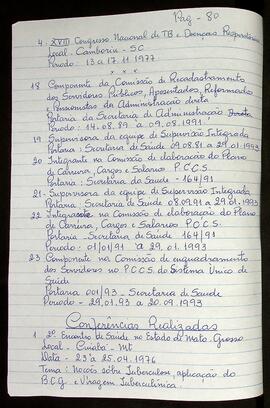 Pag - 80
4. XVIII Congresso Nacional de TB e Doenças Respiratórias
Local - Camboriu - SC
Período: 13 a 17.11.1977
x x x
18 Componente da Comissão de Recadastramento
dos Servidores Públicos, Aposentados, Reformados
e Pensionistas da Administração direta
Portaria da Secretaria de Administração
Período: 14.08.89 a 09.08.1991
19 Supervisora da equipe de Supervisão Integrada
Portaria: Secretaria de Saúde 09.08.91 a 29.01.1993
20 Integrante na Comissão de elaboração do Plano
de Carreira, Cargos e Salários P.C.C.S.
Portaria: Secretaria da Saúde - 164/91
21 - Supervisora da equipe de Supervisão Integrada
Portaria: Secretaria de Saúde 08.09.91 a 29.01.1993
22 Integrante na Comissão de elaboração do Plano
de Carreira, Cargos e Salários P.C.C.S.
Portaria - Secretaria de Saúde - 164/91
Período: 01/01/91 à 29.01.1993
23 Componente na Comissão de enquadramento
dos Servidores no P.C.C.S. do Sistema Único de
Saúde
Portaria 001/93 - Secretaria de Saúde
Período - 29.01.93 a 20.09.1993
Conferências Realizadas
1 2º Encontro de Saúde no Estado de Mato-Grosso
Local - Cuiabá - Mt
Data - 23 a 25.04.1976
Tema: Noções sobre Tuberculose, aplicação do
B.C.G e Viragem Tuberculínica.